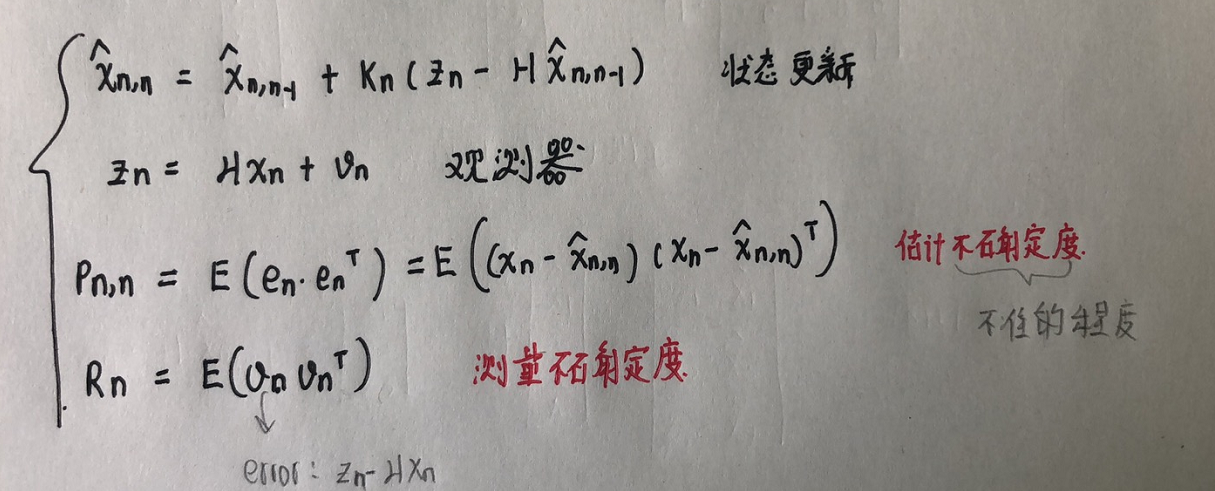 x̂n,n = x̂n,n-1 + Kn ( zn - H x̂n,n-1 ) 状态更新
zn = Hxn + vn 观测器
Pn,n = E ( en · enᵀ ) = E ( (xn - x̂n,n) (xn - x̂n,n)ᵀ ) 估计不确定度.
不准的程度
Rn = E(vn vnᵀ) 测量不确定度.
error: zn - Hxn